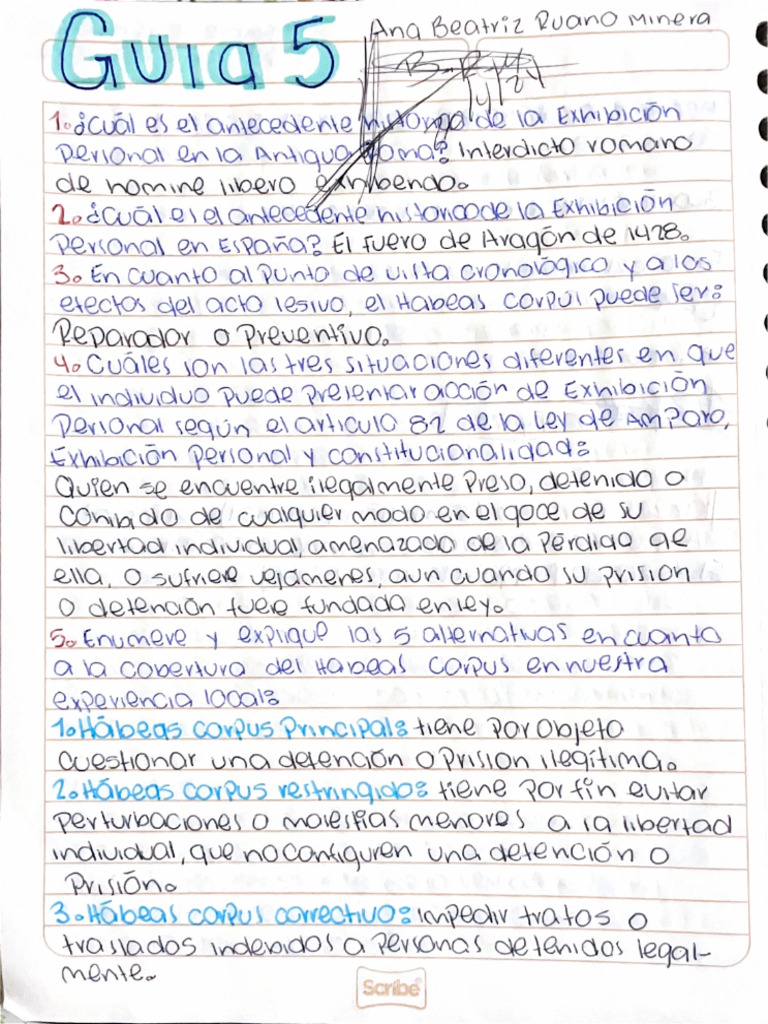 Guía 5
Ana Beatriz Ruano Minera
1. ¿Cuál es el antecedente historico de la Exhibición
Personal en la Antigua Roma? Interdicto romano
de homine libero exhibendo.
2. ¿Cuál es el antecedente historico de la Exhibición
Personal en España? El Fuero de Aragón de 1428.
3. En cuanto al punto de vista cronológico y a los
efectos del acto lesivo, el Habeas Corpus puede ser:
Reparador o Preventivo.
4. Cuáles son las tres situaciones diferentes en que
el individuo puede presentar acción de Exhibición
Personal según el articulo 82 de la Ley de Amparo,
Exhibición Personal y constitucionalidad:
Quien se encuentre ilegalmente preso, detenido o
cohibido de cualquier modo en el goce de su
libertad individual, amenazado de la pérdida de
ella, o sufriere vejámenes, aun cuando su prision
o detención fuere fundada en ley.
5. Enumere y explique las 5 alternativas en cuanto
a la cobertura del Habeas Corpus en nuestra
experiencia local:
1. Hábeas corpus Principal: tiene por objeto
cuestionar una detención o prision ilegítima.
2. Hábeas corpus restringido: tiene por fin evitar
perturbaciones o molestias menores a la libertad
individual, que no configuren una detención o
Prisión.
3. Hábeas corpus correctivo: impedir tratos o
traslados indebidos a personas detenidos legal-
mente.
Scribe